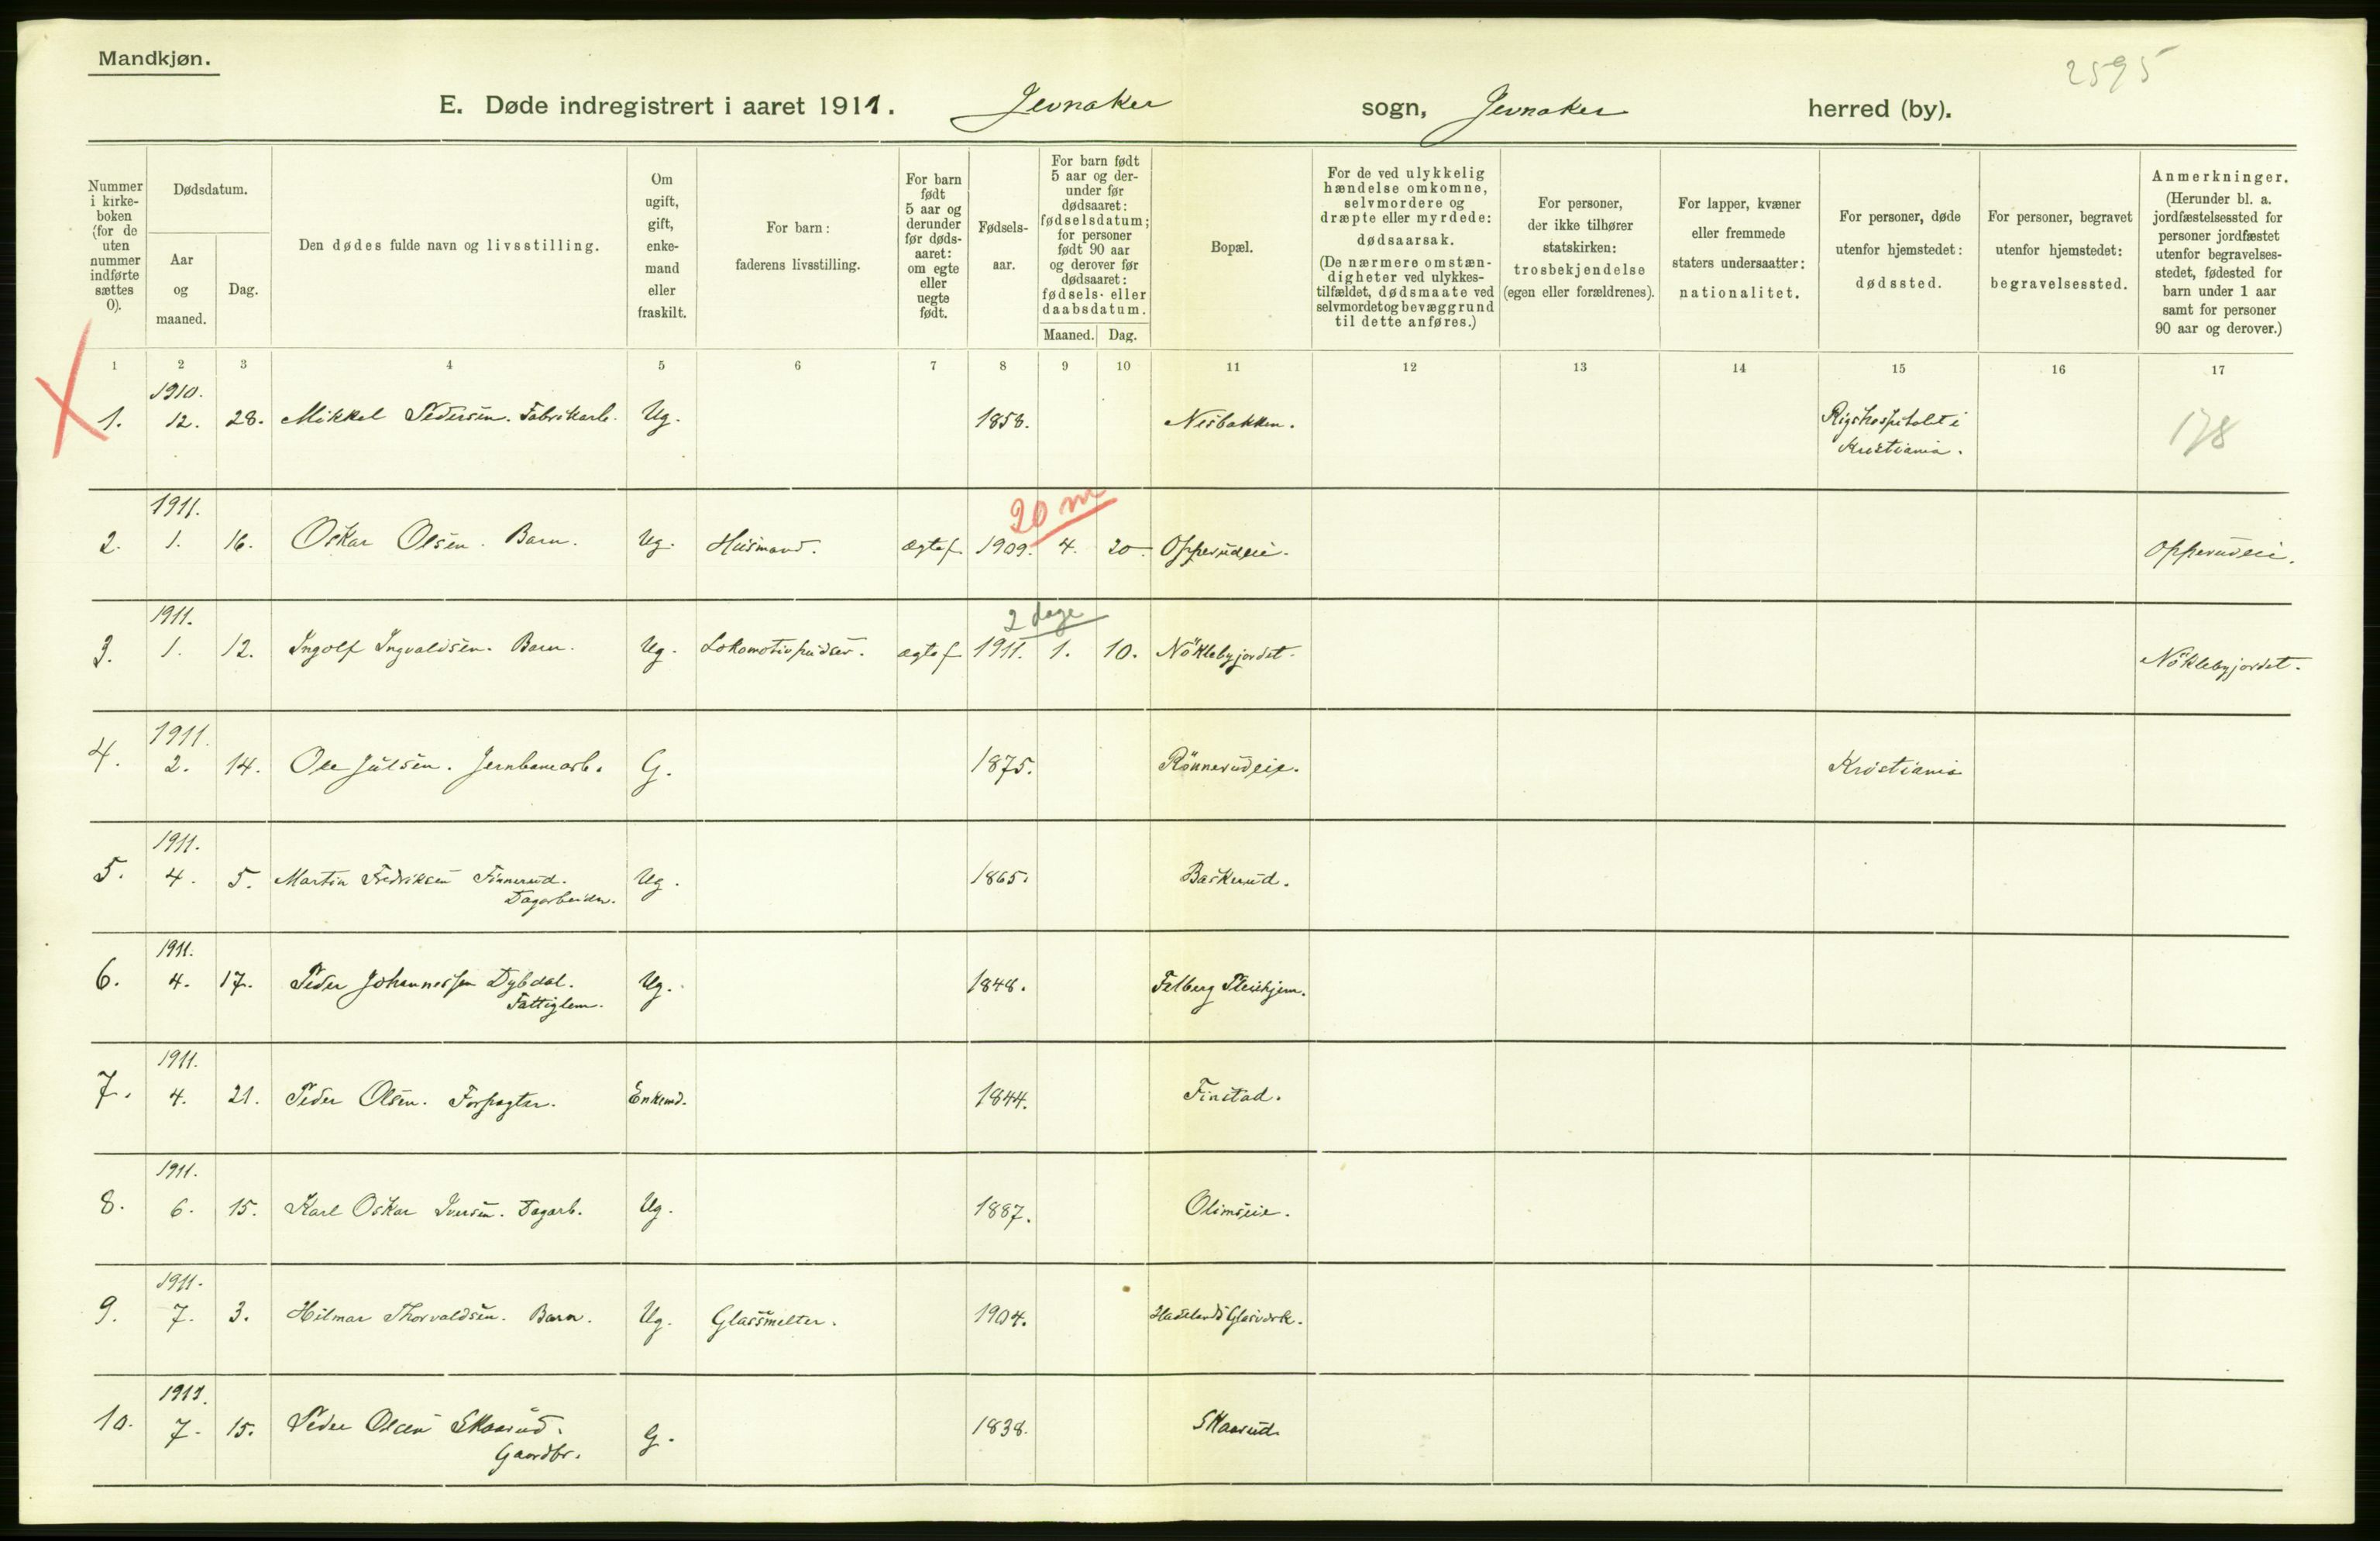 Mandkjøn.
2595
E. Døde indregistrert i aaret 1911. Jevnaker sogn, Jevnaker herred (by).
Nummer i kirke- boken (for de uten nummer indførte sættes 0).
Dødsdatum.
Aar og maaned.
Dag.
Den dødes fulde navn og livsstilling.
Om ugift, gift, enke- mand eller fraskilt.
For barn: faderens livsstilling.
For barn født 5 aar og derunder før døds- aaret: om egte eller uegte født.
Fødsels- aar.
For barn født 5 aar og der- under før dødsaaret: fødselsdatum; for personer født 90 aar og derover før dødsaaret: fødsels- eller daabsdatum.
Maaned. Dag.
Bopæl.
For de ved ulykkelig hændelse omkomne, selvmordere og dræpte eller myrdede: dødsaarsak. (De nærmere omstæn- digheter ved ulykkes- tilfældet, dødsmaate ved selvmord og bevæggrund til dette anføres.)
For personer, der ikke tilhører statskirken: trosbekjendelse (egen eller forældrenes).
For lapper, kvæner eller fremmede staters undersaatter: nationalitet.
For personer, døde utenfor hjemstedet: dødssted.
For personer, begravet utenfor hjemstedet: begravelsessted.
Anmerkninger. (Herunder bl. a. jordfæstelsessted for personer jordfæstet utenfor begravelses- stedet, fødested for barn under 1 aar samt for personer 90 aar og derover.)
1 2 3 4 5 6 7 8 9 10 11 12 13 14 15 16 17
1910.
1. 12. 28. Mikkel Pedersen. Fabrikarb. Ug. 1858. Nesbakken. Rigshospitalet i
Kristiania. 178
1911. 20 m
2. 1. 16. Oskar Olsen. Barn. Ug. Husmand. ægtef. 1909. 4. 20. Opperudeie. Opperudeie.
1911. 2 dage
3. 1. 12. Ingolf Ingvaldsen. Barn. Ug. Lokomotivpudser. ægtef 1911. 1. 10. Nöklebyjordet. Nöklebyjordet.
1911.
4. 2. 14. Ole Julsen. Jernbanearb. G. 1875. Rönnerudeie. Kristiania
1911.
5. 4. 5. Martin Fredriksen Finnerud. Ug. 1865. Baskerud.
Dagarbeider.
1911.
6. 4. 17. Peder Johannessen Dybdal. Ug. 1848. Felberg Pleiehjem.
Fattiglem.
1911.
7. 4. 21. Peder Olsen. Forpagter. Enkemd. 1844. Finstad.
1911.
8. 6. 15. Karl Oskar Iversen. Dagarb. Ug. 1887. Olimseie.
1911.
9. 7. 3. Hilmar Thorvaldsen. Barn. Ug. Glassmelter. 1904. Hadelands Glasverk.
1911.
10. 7. 15. Peder Olsen Skaarud. G. 1838. Skaarud
Gaardbr.